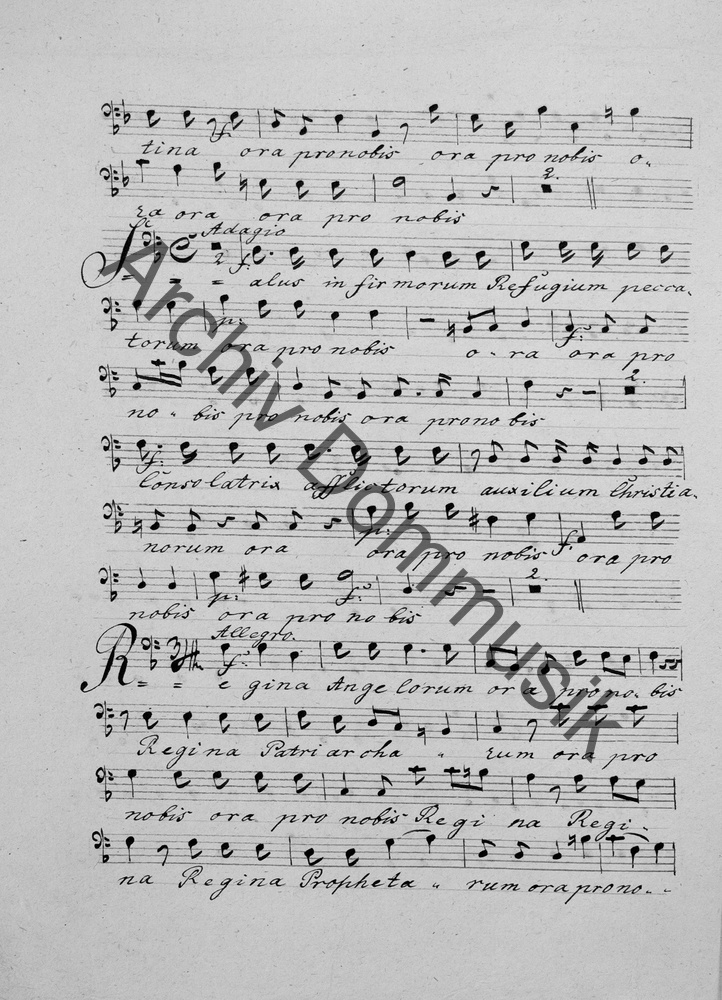 tina ora pro nobis ora pro nobis o-
2.
ra ora ora pro nobis
Adagio
2 f.
Salus in fir morum Refugium pecca-
p.
torum ora pro nobis o-ra ora pro
2.
no-bis pro nobis ora pro nobis
f.
Consolatrix afflictorum auxilium Christia-
p. f.
norum ora ora pro nobis ora pro
p. f. 2.
nobis ora pro nobis
Allegro.
f.
Regina Angelorum ora pro no-bis
Regina Patriarcha-rum ora pro
nobis ora pro nobis Regi na Regi-
na Regina Propheta-rum ora pro no--
Archiv Dommusik